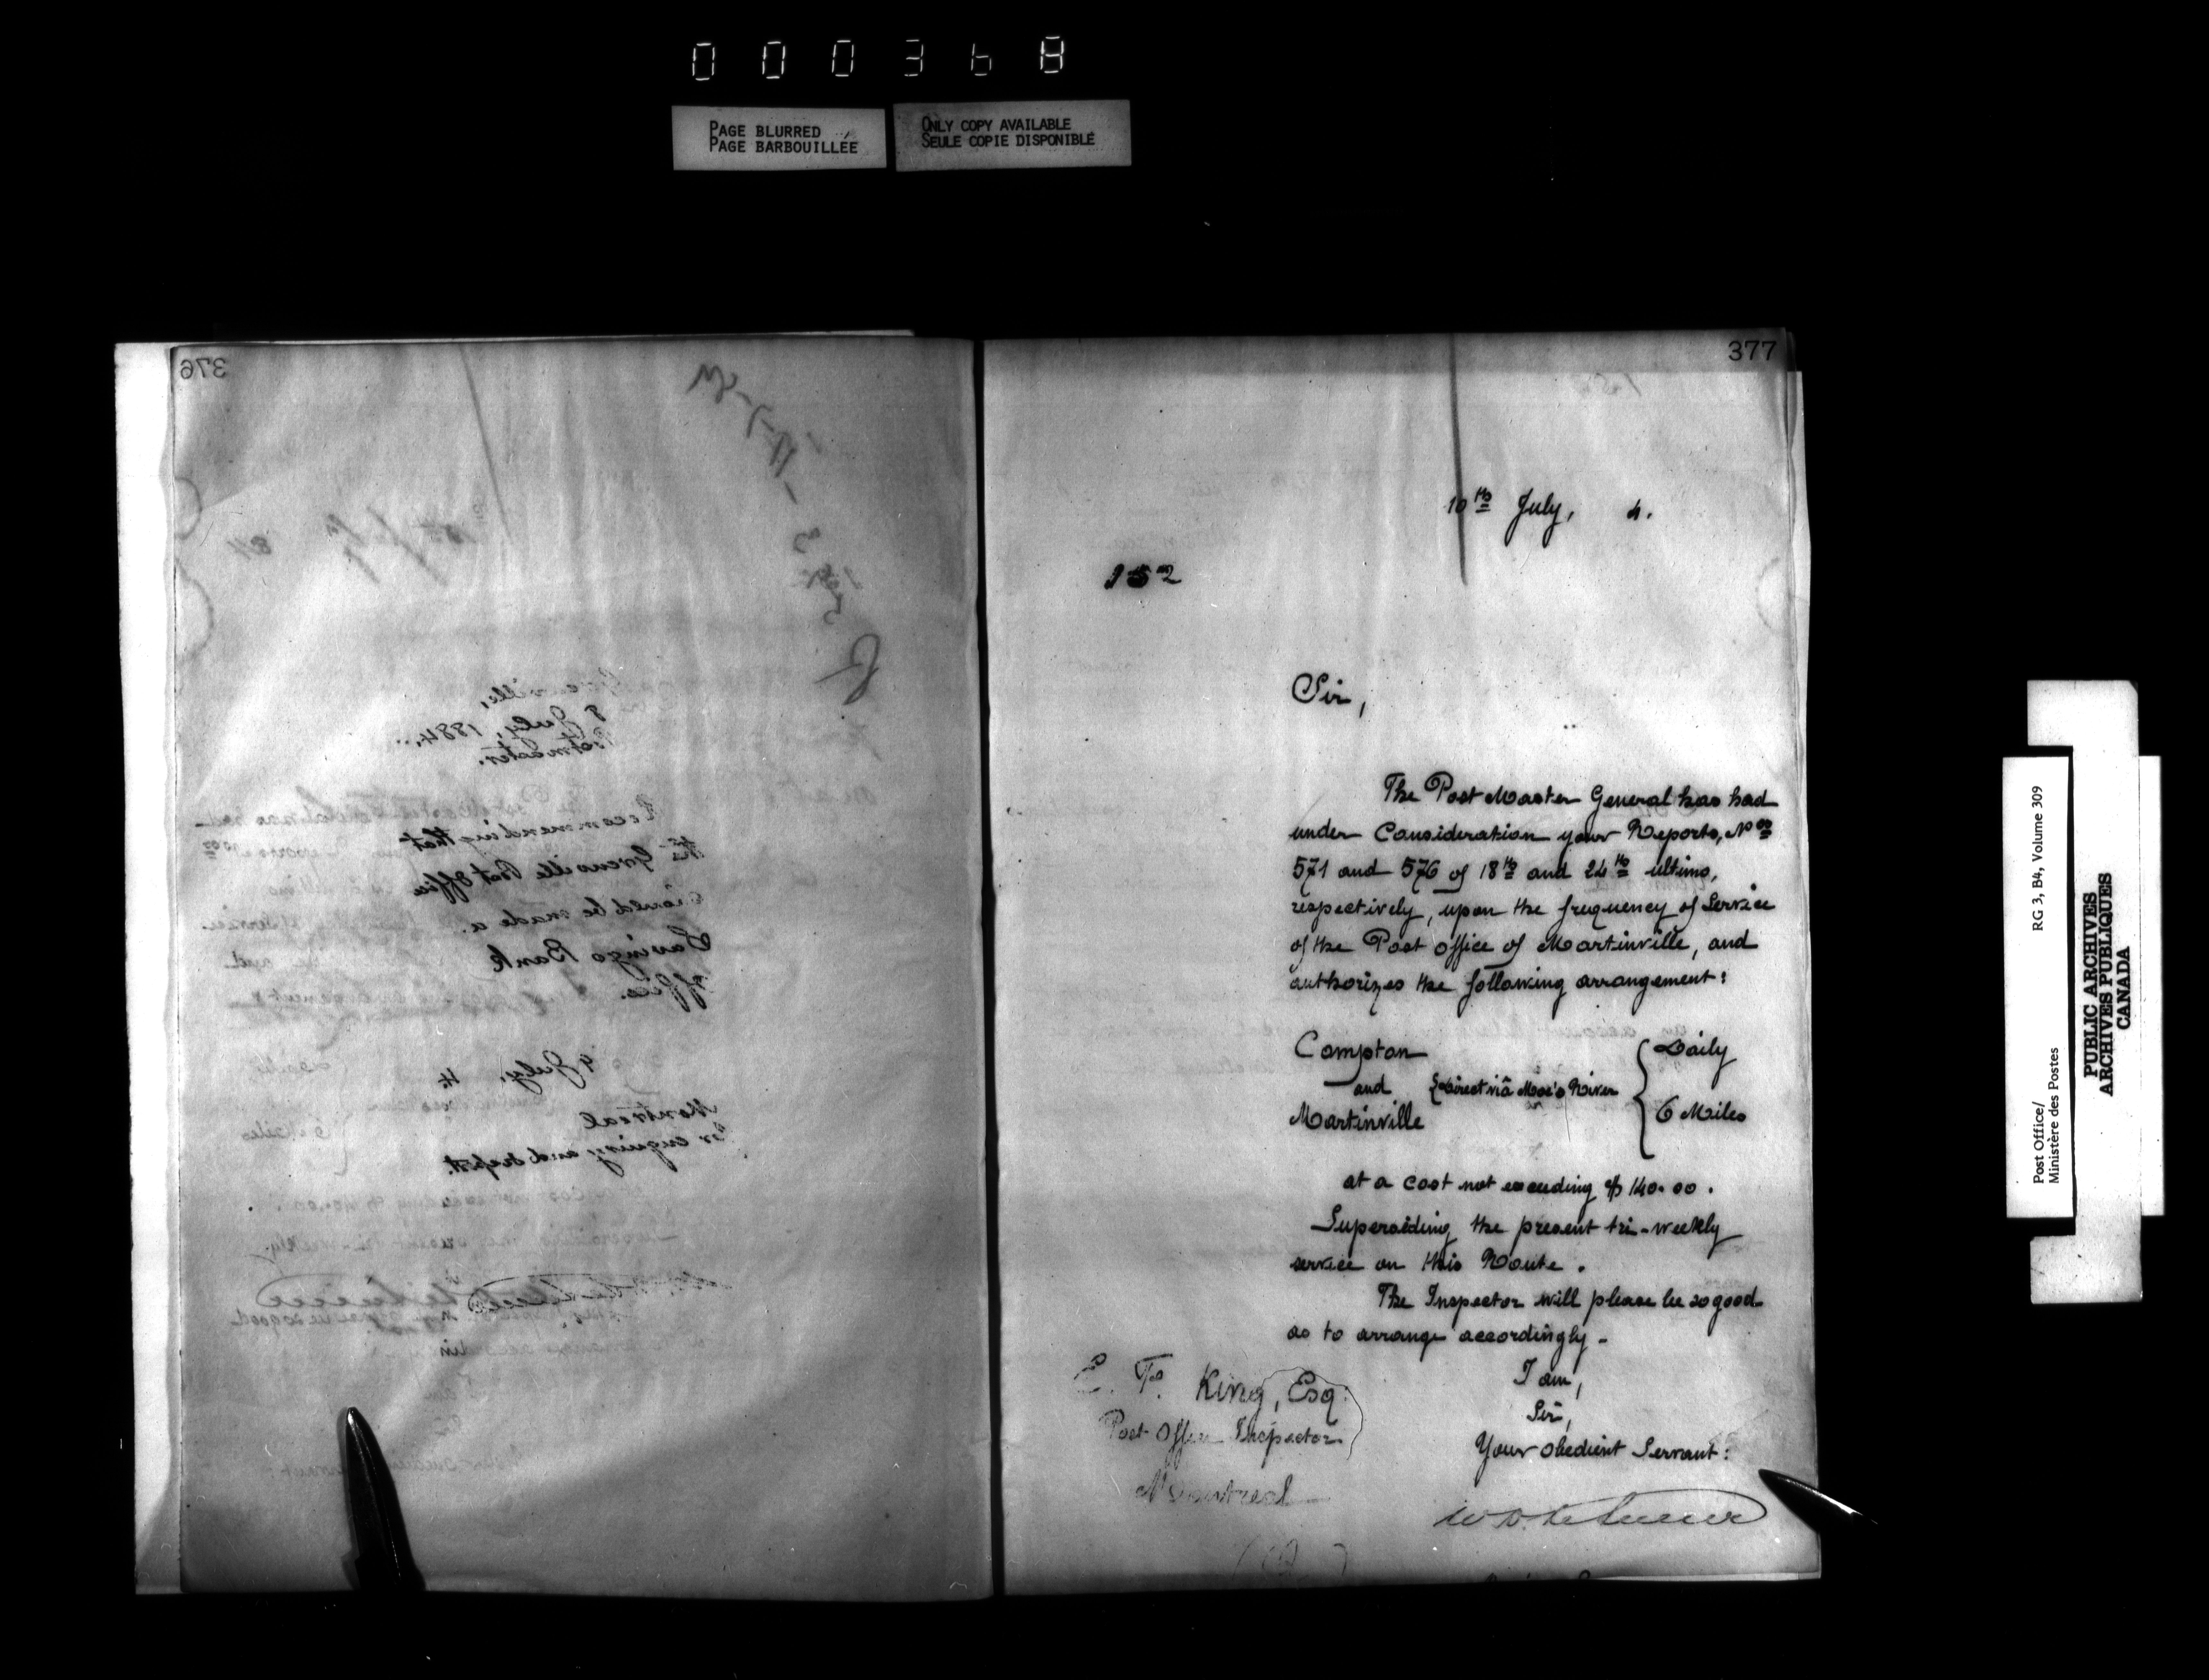 000368
PAGE BLURRED
PAGE BARBOUILLÉE
ONLY COPY AVAILABLE
SEULE COPIE DISPONIBLE
376
10th July, 84
Grenville,
8 July, 1884.
Postmaster.
Recommending that
the Grenville Post Office
should be made a
Savings Bank
Office.
9 July, 4.
Montreal
For enquiry and report.
377
10th July, 4.
152
Sir,
The Post Master General has had
under Consideration your Reports, Nos
571 and 576 of 18th and 24th ultimo,
respectively, upon the frequency of Service
of the Post Office of Martinville, and
authorizes the following arrangement:
Compton
and
Martinville
Direct viâ Moe's River
Daily
6 Miles
at a cost not exceeding $140.00.
Superseding the present tri-weekly
service on this Route.
The Inspector will please be so good
as to arrange accordingly -
I am,
Sir,
Your obedient Servant:
E. F. King, Esq.
Post Office Inspector
Montreal
Post Office/
Ministère des Postes
RG 3, B4, Volume 309
PUBLIC ARCHIVES
ARCHIVES PUBLIQUES
CANADA